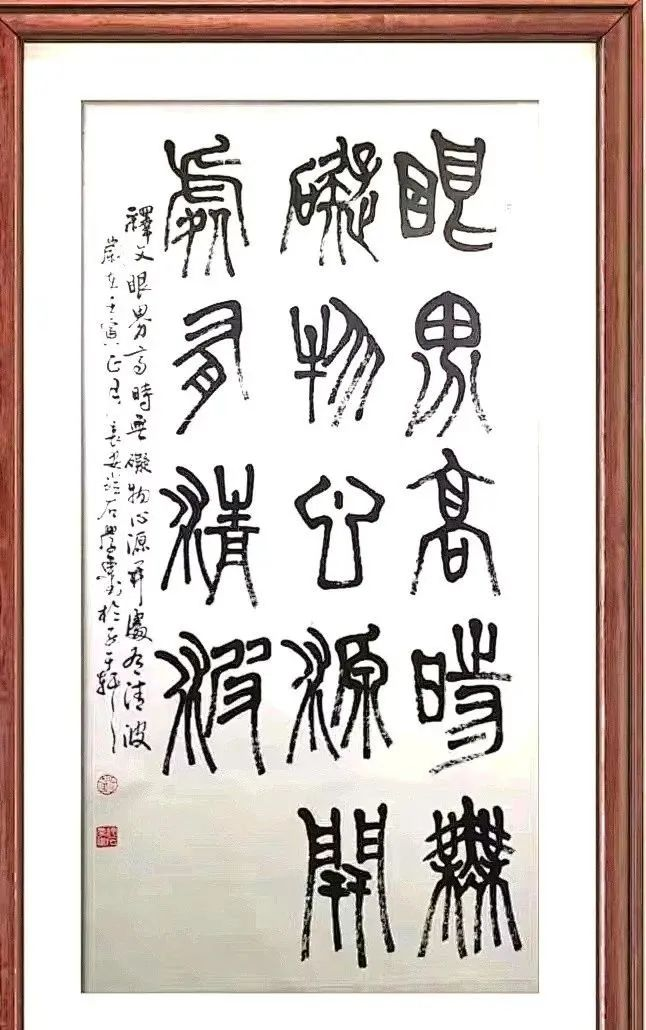 眼界高時無
礙物心源開
處有清波
釋文眼界高時無礙物心源開處有清波
歲在壬寅正月